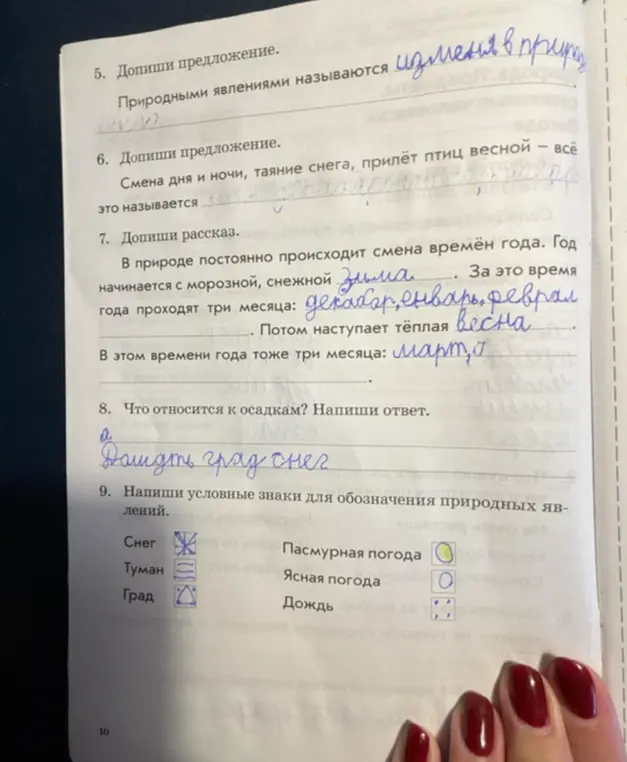 5. Допиши предложение.
Природными явлениями называются изменя в природ
6. Допиши предложение.
Смена дня и ночи, таяние снега, прилёт птиц весной – всё
это называется
7. Допиши рассказ.
В природе постоянно происходит смена времён года. Год
начинается с морозной, снежной зима. За это время
года проходят три месяца: декабор, енварь, феврал
. Потом наступает тёплая весна.
В этом времени года тоже три месяца: март, а
8. Что относится к осадкам? Напиши ответ.
а
Дошдть град снег
9. Напиши условные знаки для обозначения природных яв-
лений.
Снег Пасмурная погода
Туман Ясная погода
Град Дождь
10